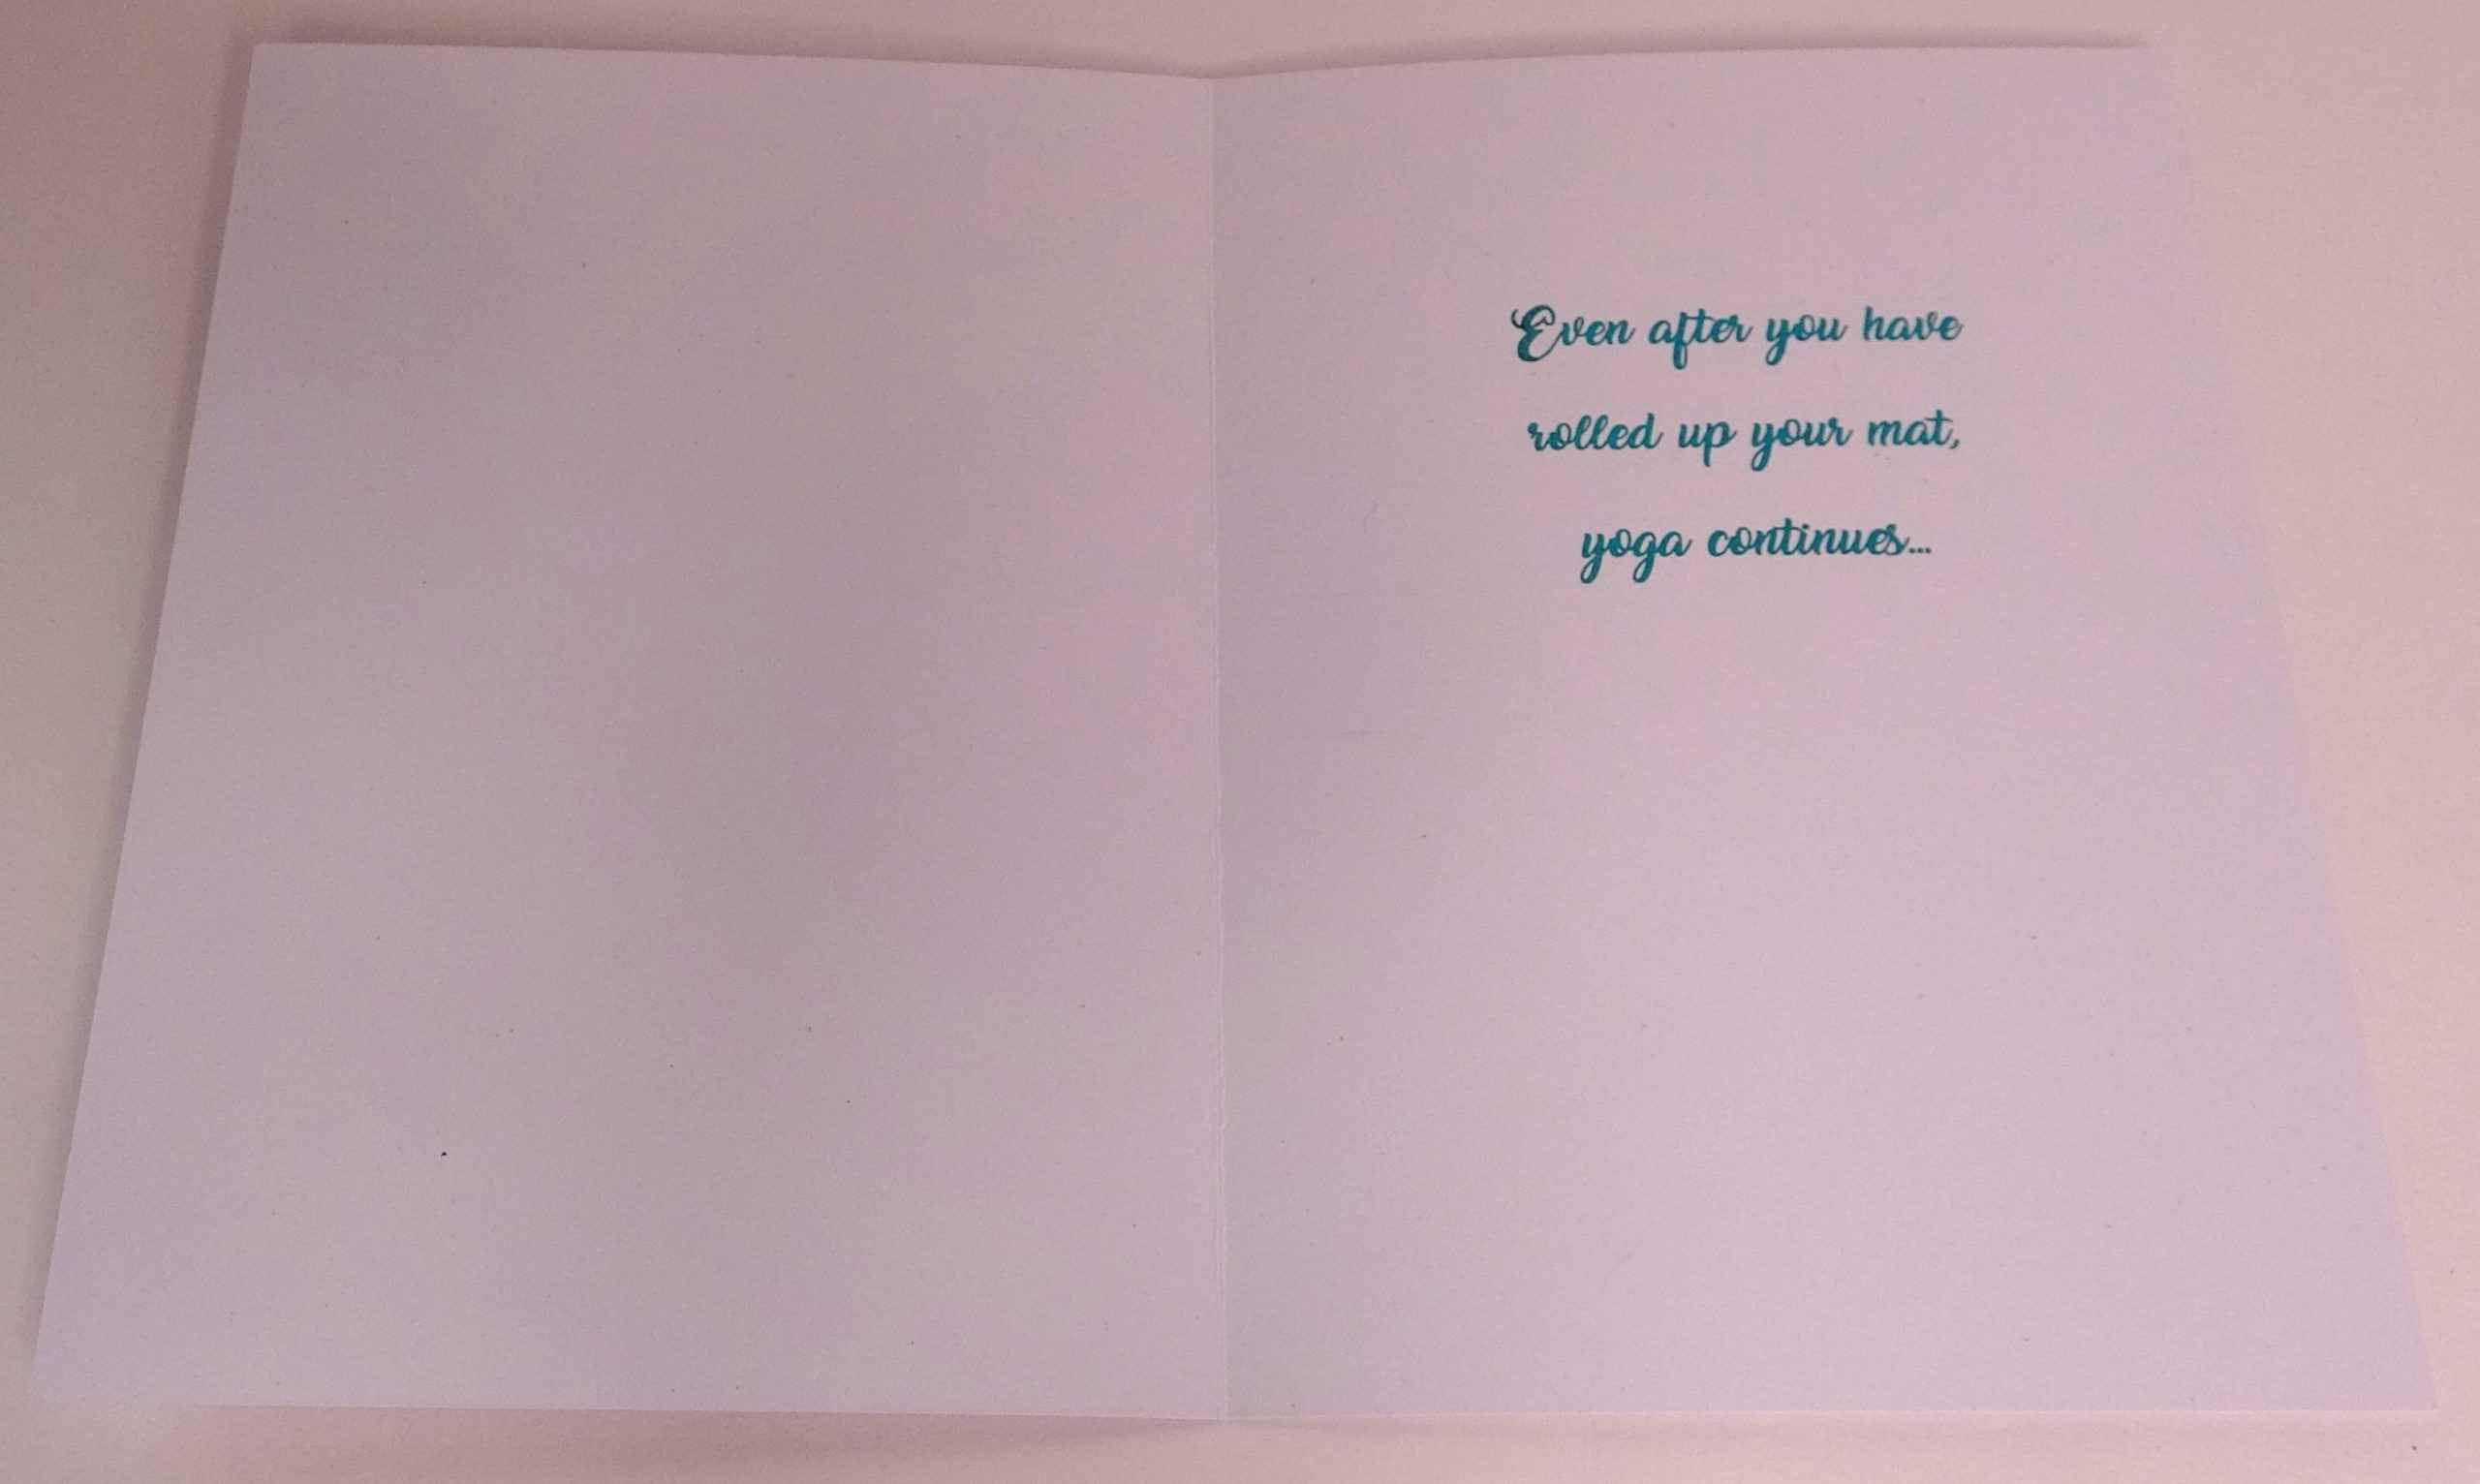 Even after you have
rolled up your mat,
yoga continues...